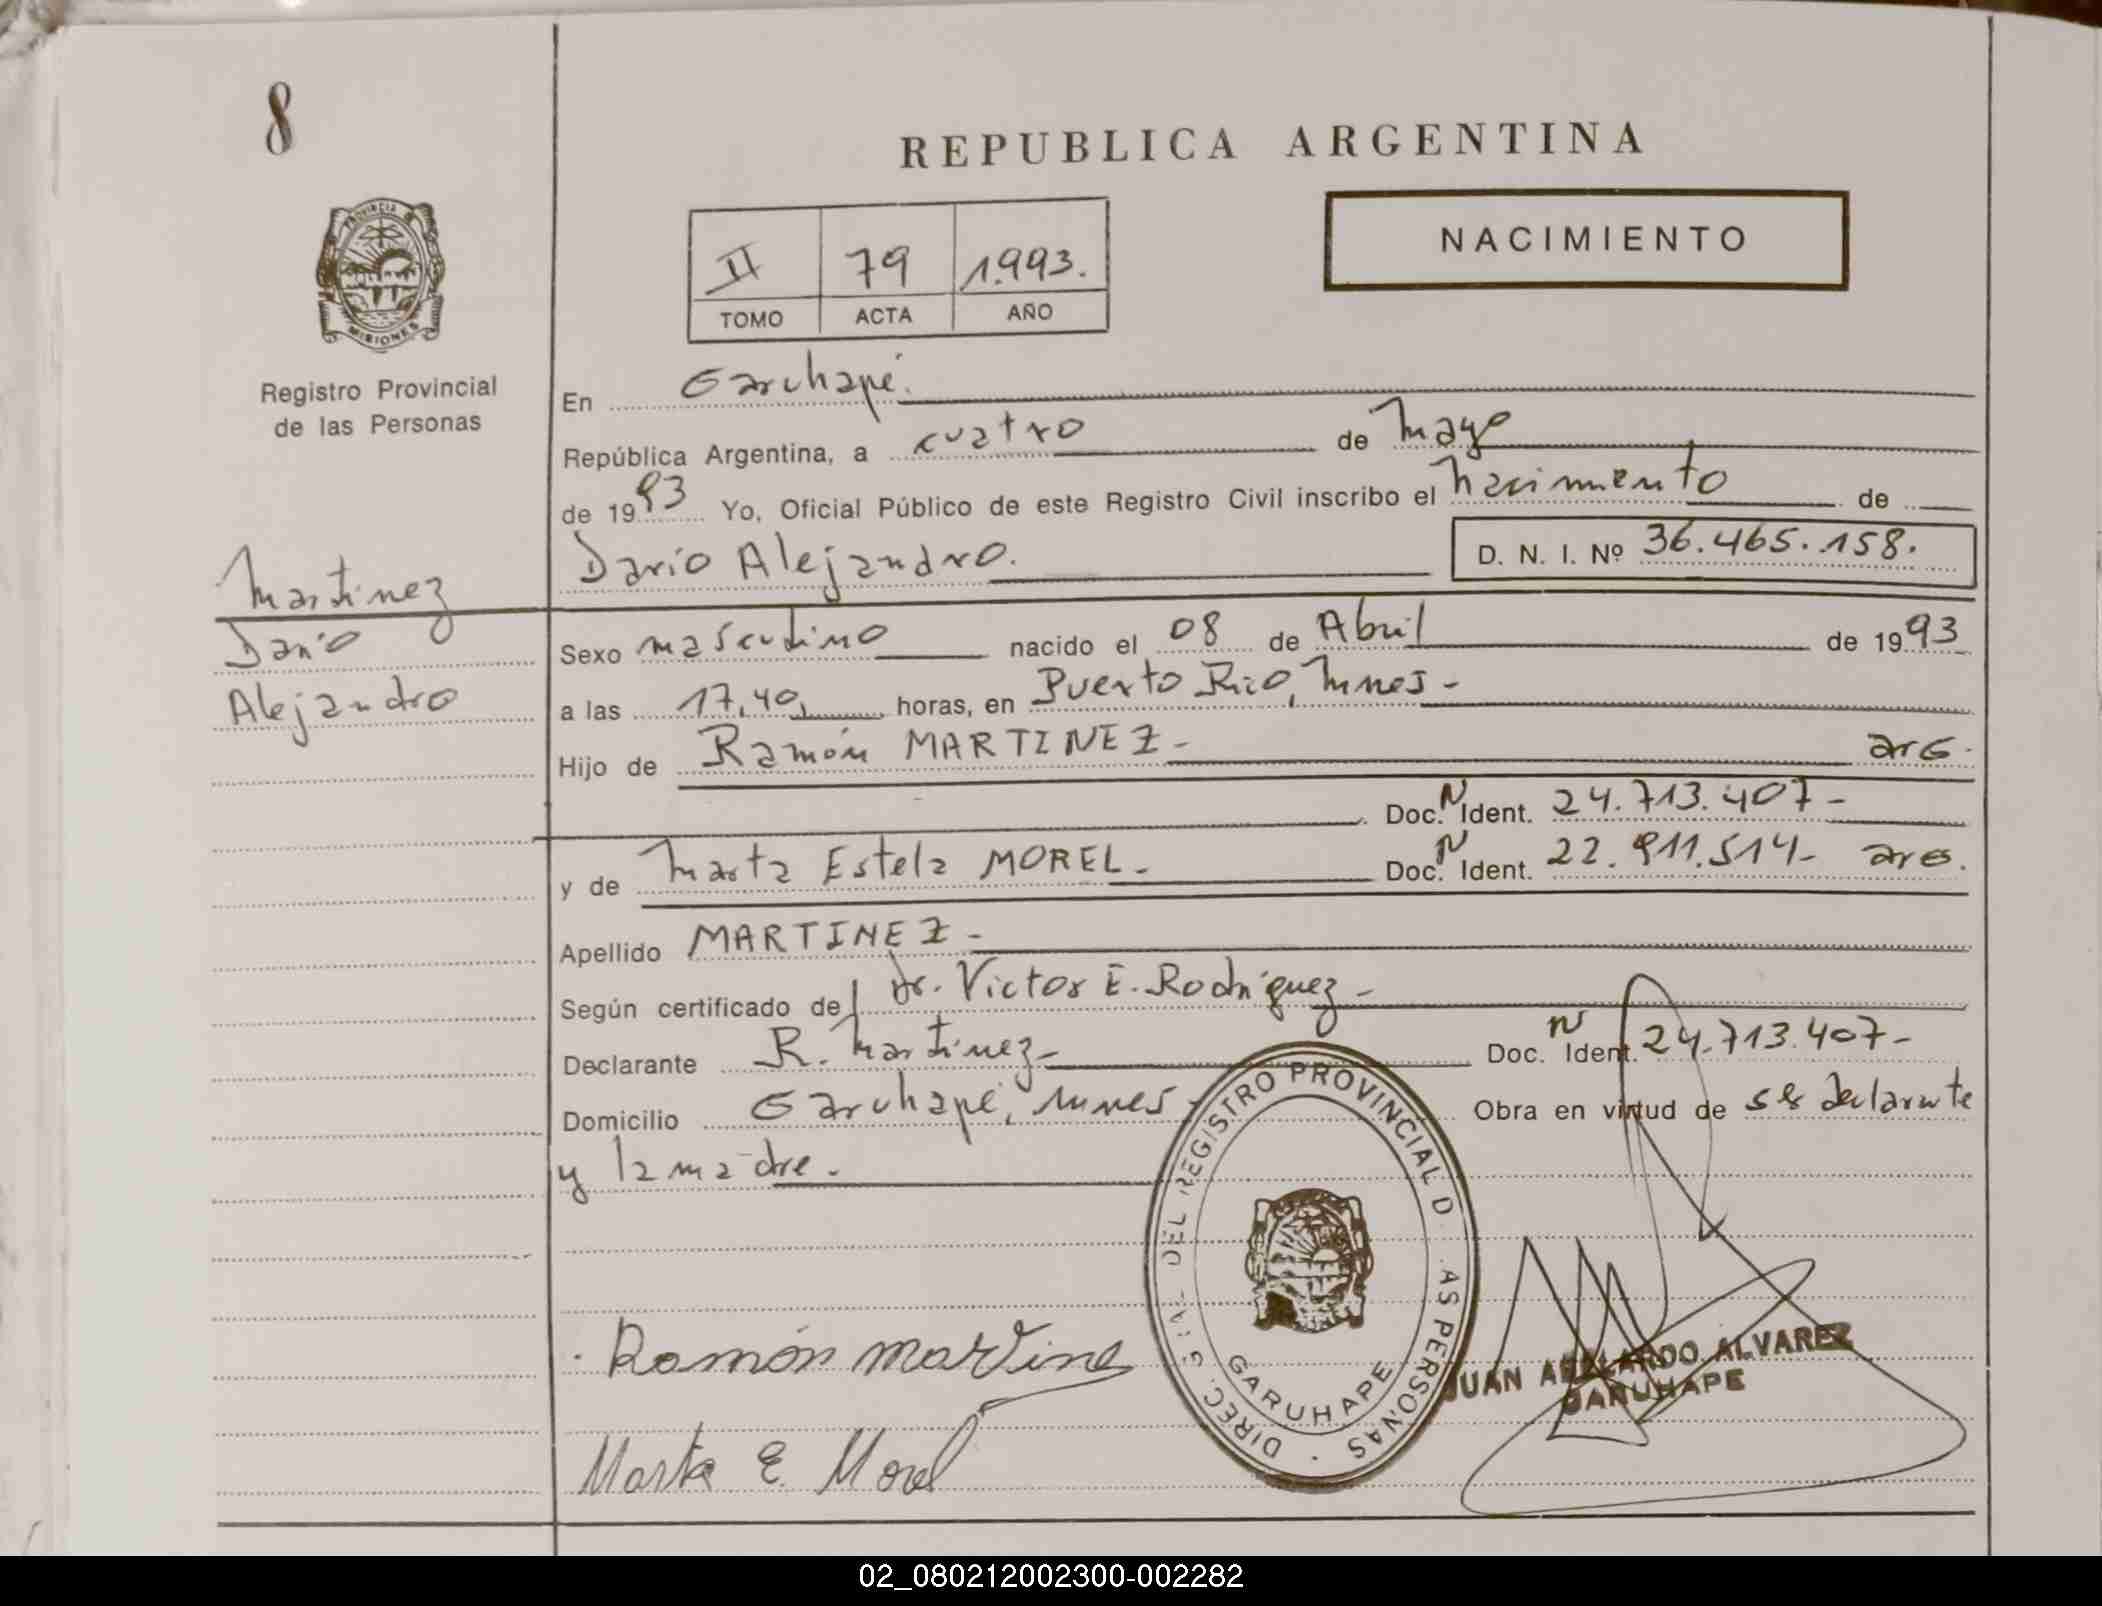 8
REPUBLICA ARGENTINA
NACIMIENTO
PROVINCIA
MISIONES
II 79 1.993.
TOMO ACTA AÑO
Registro Provincial
de las Personas
En Garuhapé.
República Argentina, a cuatro de Mayo
de 1993 Yo, Oficial Público de este Registro Civil inscribo el Nacimiento de
Darío Alejandro. D. N. I. Nº 36.465.158.
Martinez
Dario
Alejandro
Sexo masculino nacido el 08 de Abril de 1993
a las 17,40, horas, en Puerto Rico, Mnes-
Hijo de Ramón MARTINEZ- arG.
Doc. N Ident. 24.713.407-
y de Marta Estela MOREL- Doc. N Ident. 22.911.514- arG.
Apellido MARTINEZ-
Según certificado del Dr. Victor E. Rodríguez-
Declarante R. Martinez- Doc. N Ident. 24.713.407-
Domicilio Garuhapé, Mnes Obra en virtud de ser declarante
y la madre.
DIREC. GRAL DEL REGISTRO PROVINCIAL D AS PERSONAS
GARUHAPE
Ramón Martine
JUAN ABELARDO ALVAREZ
GARUHAPE
Marta E. Morel
02_080212002300-002282